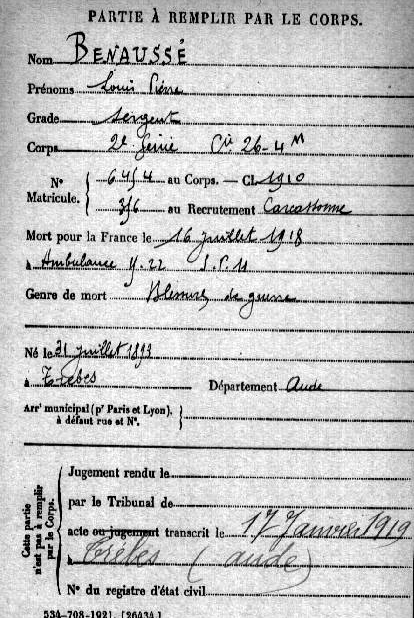 PARTIE À REMPLIR PAR LE CORPS.
Nom BENAUSSÉ
Prénoms Louis Pierre
Grade Sergent
Corps 2e Génie Cie 26-4 M
N° Matricule. 6454 au Corps. — Cl. 1910
376 au Recrutement Carcassonne
Mort pour la France le 16 juillet 1918
à Ambulance Y.22 S.P. 11
Genre de mort Blessures de guerre
Né le 31 juillet 1893
à Trèbes Département Aude
Arrt municipal (pr Paris et Lyon),
à défaut rue et N°.
Cette partie n'est pas à remplir par le Corps.
Jugement rendu le
par le Tribunal de
acte ou jugement transcrit le 17 Janvier 1919
à Trèbes (Aude)
N° du registre d'état civil
534-708-1921. [26434.]